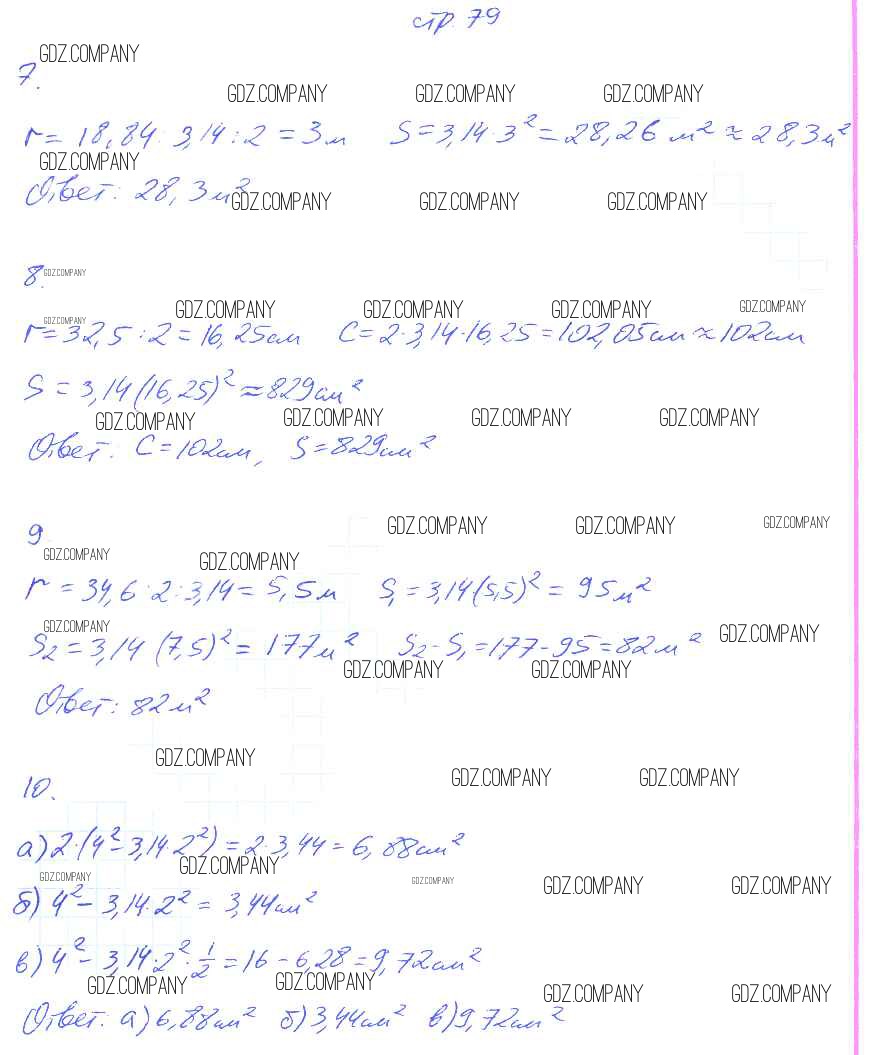 стр. 79
GDZ.COMPANY
7.
GDZ.COMPANY GDZ.COMPANY GDZ.COMPANY
r = 18,84 : 3,14 : 2 = 3 м S = 3,14 · 3² = 28,26 м² ≈ 28,3 м²
GDZ.COMPANY
Ответ: 28,3 м²
GDZ.COMPANY GDZ.COMPANY GDZ.COMPANY
8. GDZ.COMPANY
GDZ.COMPANY GDZ.COMPANY GDZ.COMPANY GDZ.COMPANY
GDZ.COMPANY
r = 32,5 : 2 = 16,25 см C = 2 · 3,14 · 16,25 = 102,05 см ≈ 102 см
S = 3,14 (16,25)² ≈ 829 см²
GDZ.COMPANY GDZ.COMPANY GDZ.COMPANY GDZ.COMPANY
Ответ: C = 102 см, S = 829 см²
9. GDZ.COMPANY GDZ.COMPANY GDZ.COMPANY
GDZ.COMPANY GDZ.COMPANY
r = 34,6 : 2 : 3,14 = 5,5 м S₁ = 3,14 (5,5)² = 95 м²
GDZ.COMPANY GDZ.COMPANY
S₂ = 3,14 (7,5)² = 177 м² S₂ - S₁ = 177 - 95 = 82 м²
GDZ.COMPANY GDZ.COMPANY
Ответ: 82 м²
GDZ.COMPANY GDZ.COMPANY GDZ.COMPANY
10.
а) 2 · (4² - 3,14 · 2²) = 2 · 3,44 = 6,88 см²
GDZ.COMPANY
GDZ.COMPANY GDZ.COMPANY GDZ.COMPANY GDZ.COMPANY
б) 4² - 3,14 · 2² = 3,44 см²
в) 4² - 3,14 · 2² · 1/2 = 16 - 6,28 = 9,72 см²
GDZ.COMPANY GDZ.COMPANY GDZ.COMPANY GDZ.COMPANY
Ответ: а) 6,88 см² б) 3,44 см² в) 9,72 см²